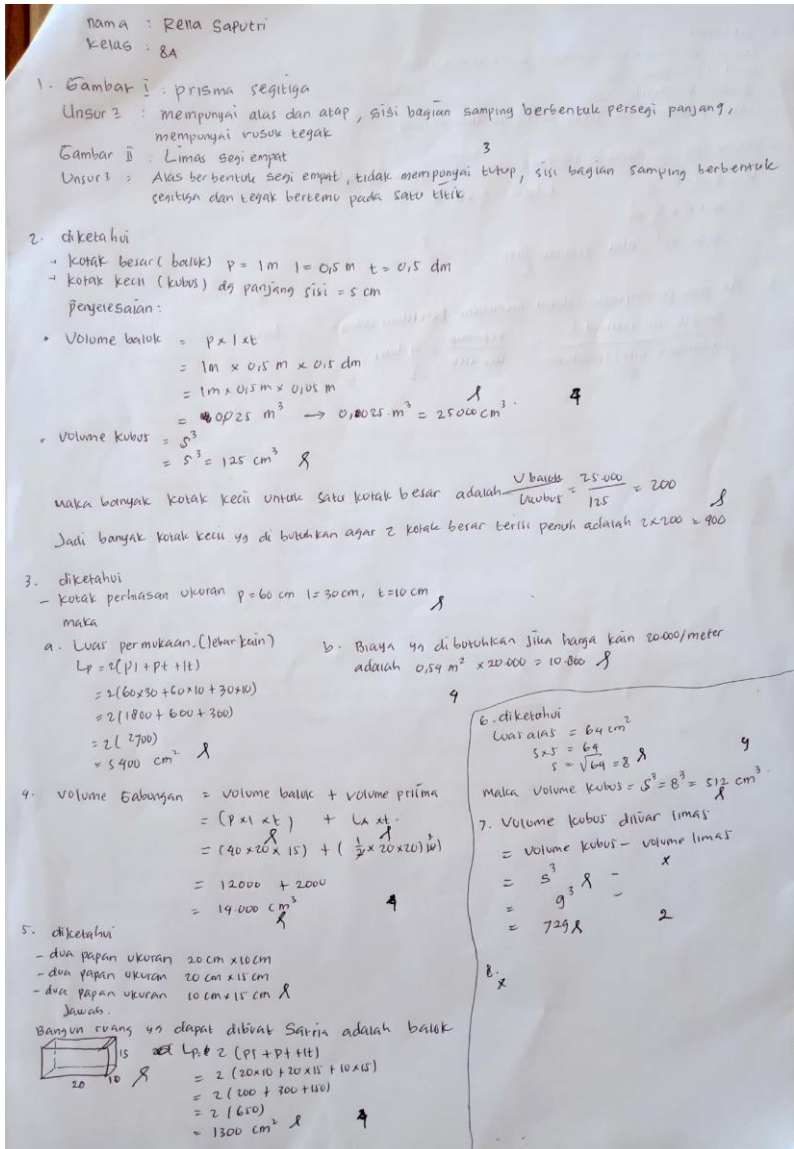 nama : Rella Saputri
Kelas : 8A
1. Gambar I : prisma segitiga
Unsur2 : mempunyai alas dan atap, sisi bagian samping berbentuk persegi panjang,
mempunyai rusuk tegak
3
Gambar II : Limas segi empat
Unsur2 : Alas berbentuk segi empat, tidak mempunyai tutup, sisi bagian samping berbentuk
segitiga dan tegak bertemu pada satu titik.
2. diketahui
→ kotak besar (balok) P = 1m l = 0,5 m t = 0,5 dm
→ kotak kecil (kubus) dg panjang sisi = 5 cm
penyelesaian :
• Volume balok = p x l x t
= 1m x 0,5 m x 0,5 dm
= 1m x 0,5 m x 0,05 m
= 0,025 m³ → 0,0025 m³ = 25000 cm³.
4
• Volume kubus = s³
= 5³ = 125 cm³
Maka banyak kotak kecil untuk satu kotak besar adalah V balok / V kubus = 25.000 / 125 = 200
Jadi banyak kotak kecil yg di butuhkan agar 2 kotak besar terisi penuh adalah 2x200 = 400
3. diketahui
- kotak perhiasan ukuran p=60 cm l=30 cm, t=10 cm
maka
a. Luas permukaan (lebar kain)
Lp = 2(pl + pt + lt)
= 2(60x30 + 60x10 + 30x10)
= 2(1800 + 600 + 300)
= 2(2700)
= 5400 cm²
b. Biaya yg dibutuhkan jika harga kain 20.000/meter
adalah 0,54 m² x 20.000 = 10.800
4
4. Volume Gabungan = volume balok + volume prisma
= (p x l x t) + La x t.
= (40 x 20 x 15) + (1/2 x 20 x 20) 10)
= 12000 + 2000
= 14.000 cm³
4
5. diketahui
- dua papan ukuran 20 cm x 10 cm
- dua papan ukuran 20 cm x 15 cm
- dua papan ukuran 10 cm x 15 cm
Jawab.
Bangun ruang yg dapat dibuat Satria adalah balok
15
20 10
Lp = 2 (pl + pt + lt)
= 2 (20x10 + 20x15 + 10x15)
= 2 (200 + 300 + 150)
= 2 (650)
= 1300 cm²
4
6. diketahui
Luas alas = 64 cm²
s x s = 64
s = √64 = 8
4
maka volume kubus = s³ = 8³ = 512 cm³.
7. Volume kubus diluar limas
= volume kubus - volume limas
= s³ - x
= 9³ -
= 729
2
8. x